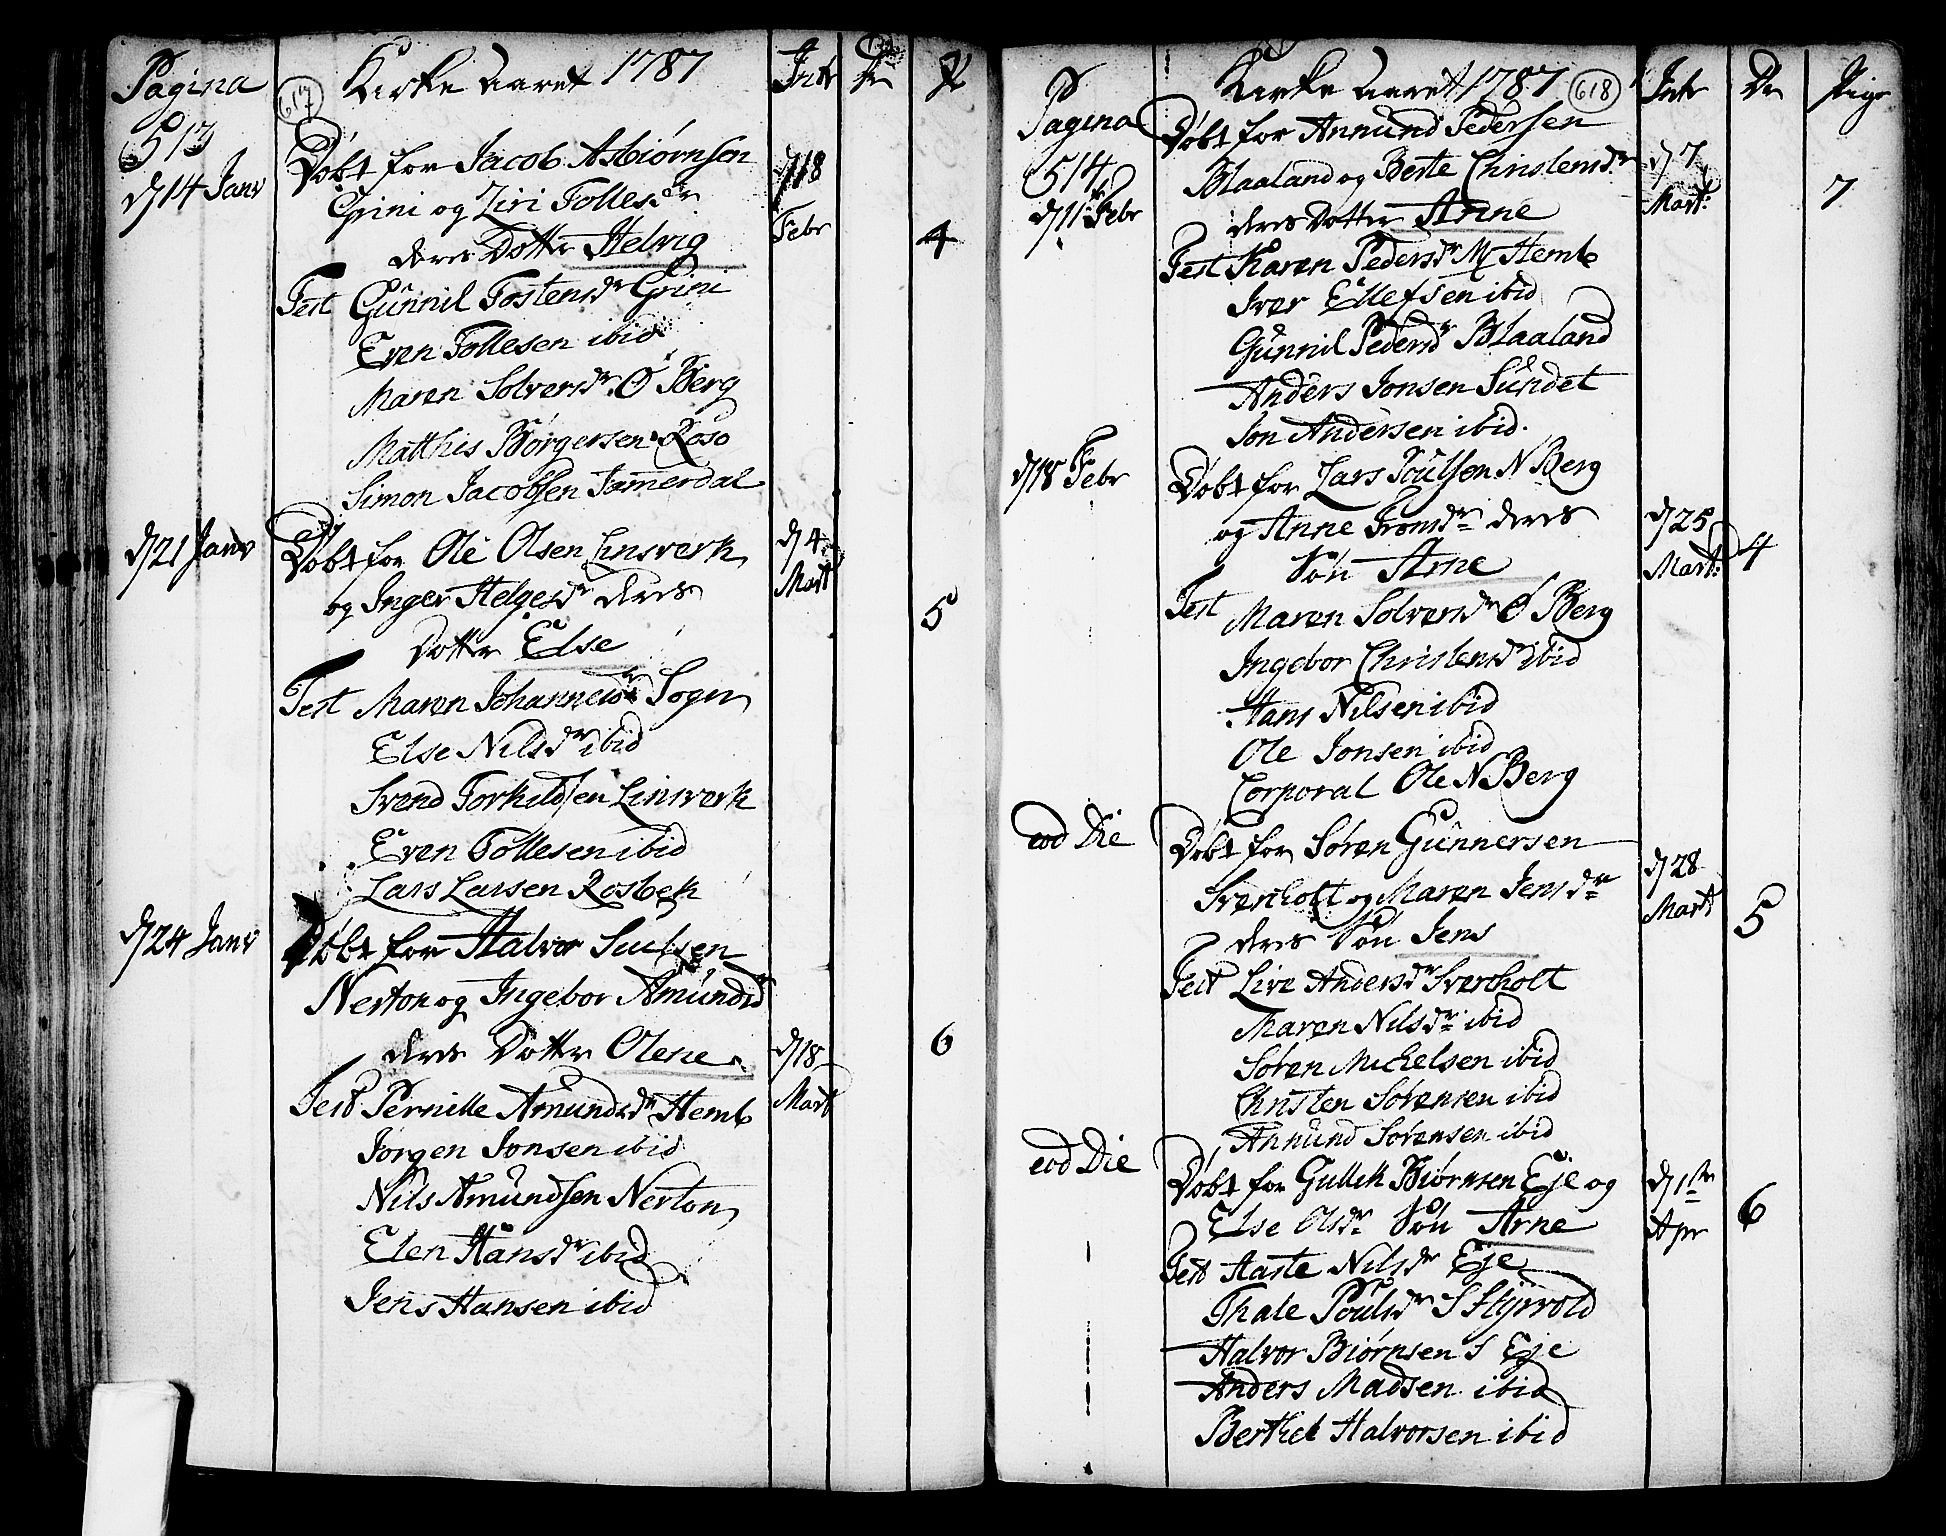 Pagina 617 Kirke Aaret 1787 Intr Dr P
513
d 14 Janv Döbt for Jacob Asbiörnsen d 18
Grini og Siri Tollesdr Febr
deres Dotter Helvig 4
Test Gunnil Tostensdr Grini
Even Tollesen ibid
Maren Solversdr Ö Berg
Matthis Börgersen Roso
Simon Jacobsen Jamerdal
d 21 Janv Döbt for Ole Olsen Linsverk d 4
og Inger Helgesdr deres Mart
Dotter Else 5
Test Maren Johannesdr Sogn
Else Nilsdr ibid
Svend Torkildsen Linsverk
Even Tollesen ibid
Lars Larsen Rosbek
d 24 Janv Döbt for Halvor
Nerton og Ingebor Amundsd
deres Dotter Olene d 18 6
Test Pernille Amundsdr Hemb Mart
Jörgen Jonsen ibid
Nils Amundsen Nerton
Elen Hansdr ibid
Jens Hansen ibid
Pagina Kirke Aaret 1787 618 Intr Dr Pige
514 Döbt for Annund Pedersen
d 11 Febr Blaaland og Berte Christensdr d 7 Mart: 7
deres Dotter Anne
Test Karen Pedersdr M Hemb
Iver Ellefsen ibid
Gunnil Pedersdr Blaaland
Anders Jonsen Sundet
Jon Andersen ibid.
d 18 Febr Döbt for Lars Poulsen N Berg
og Anne Iromsdr deres d 25
Sön Arne Mart: 4
Test Maren Solversdr Ö Berg
Ingebor Christensdr ibid
Hans Nilsen ibid
Ole Jonsen ibid
Corporal Ole N Berg
eod Die Döbt for Sören Gunnersen
Sverholt og Maren Jensdr d 28 Mart 5
deres Sön Jens
Test Live Andersdr Sverholt
Maren Nilsdr ibid
Sören Michelsen ibid
Christen Sörensen ibid
Annund Sörensen ibid
eod Die Döbt for Gullik Biörnsen Eje og d 1ste
Else Olsdr Sön Arne Apr 6
Test Aaste Nilsdr Eje
Thale Poulsdr S Styrvold
Halvor Biörnsen S Eje
Anders Madsen ibid
Berthel Halvorsen ibid